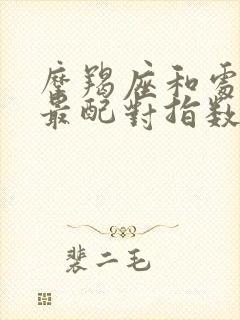 摩羯座和處
最配對指數
裴二毛